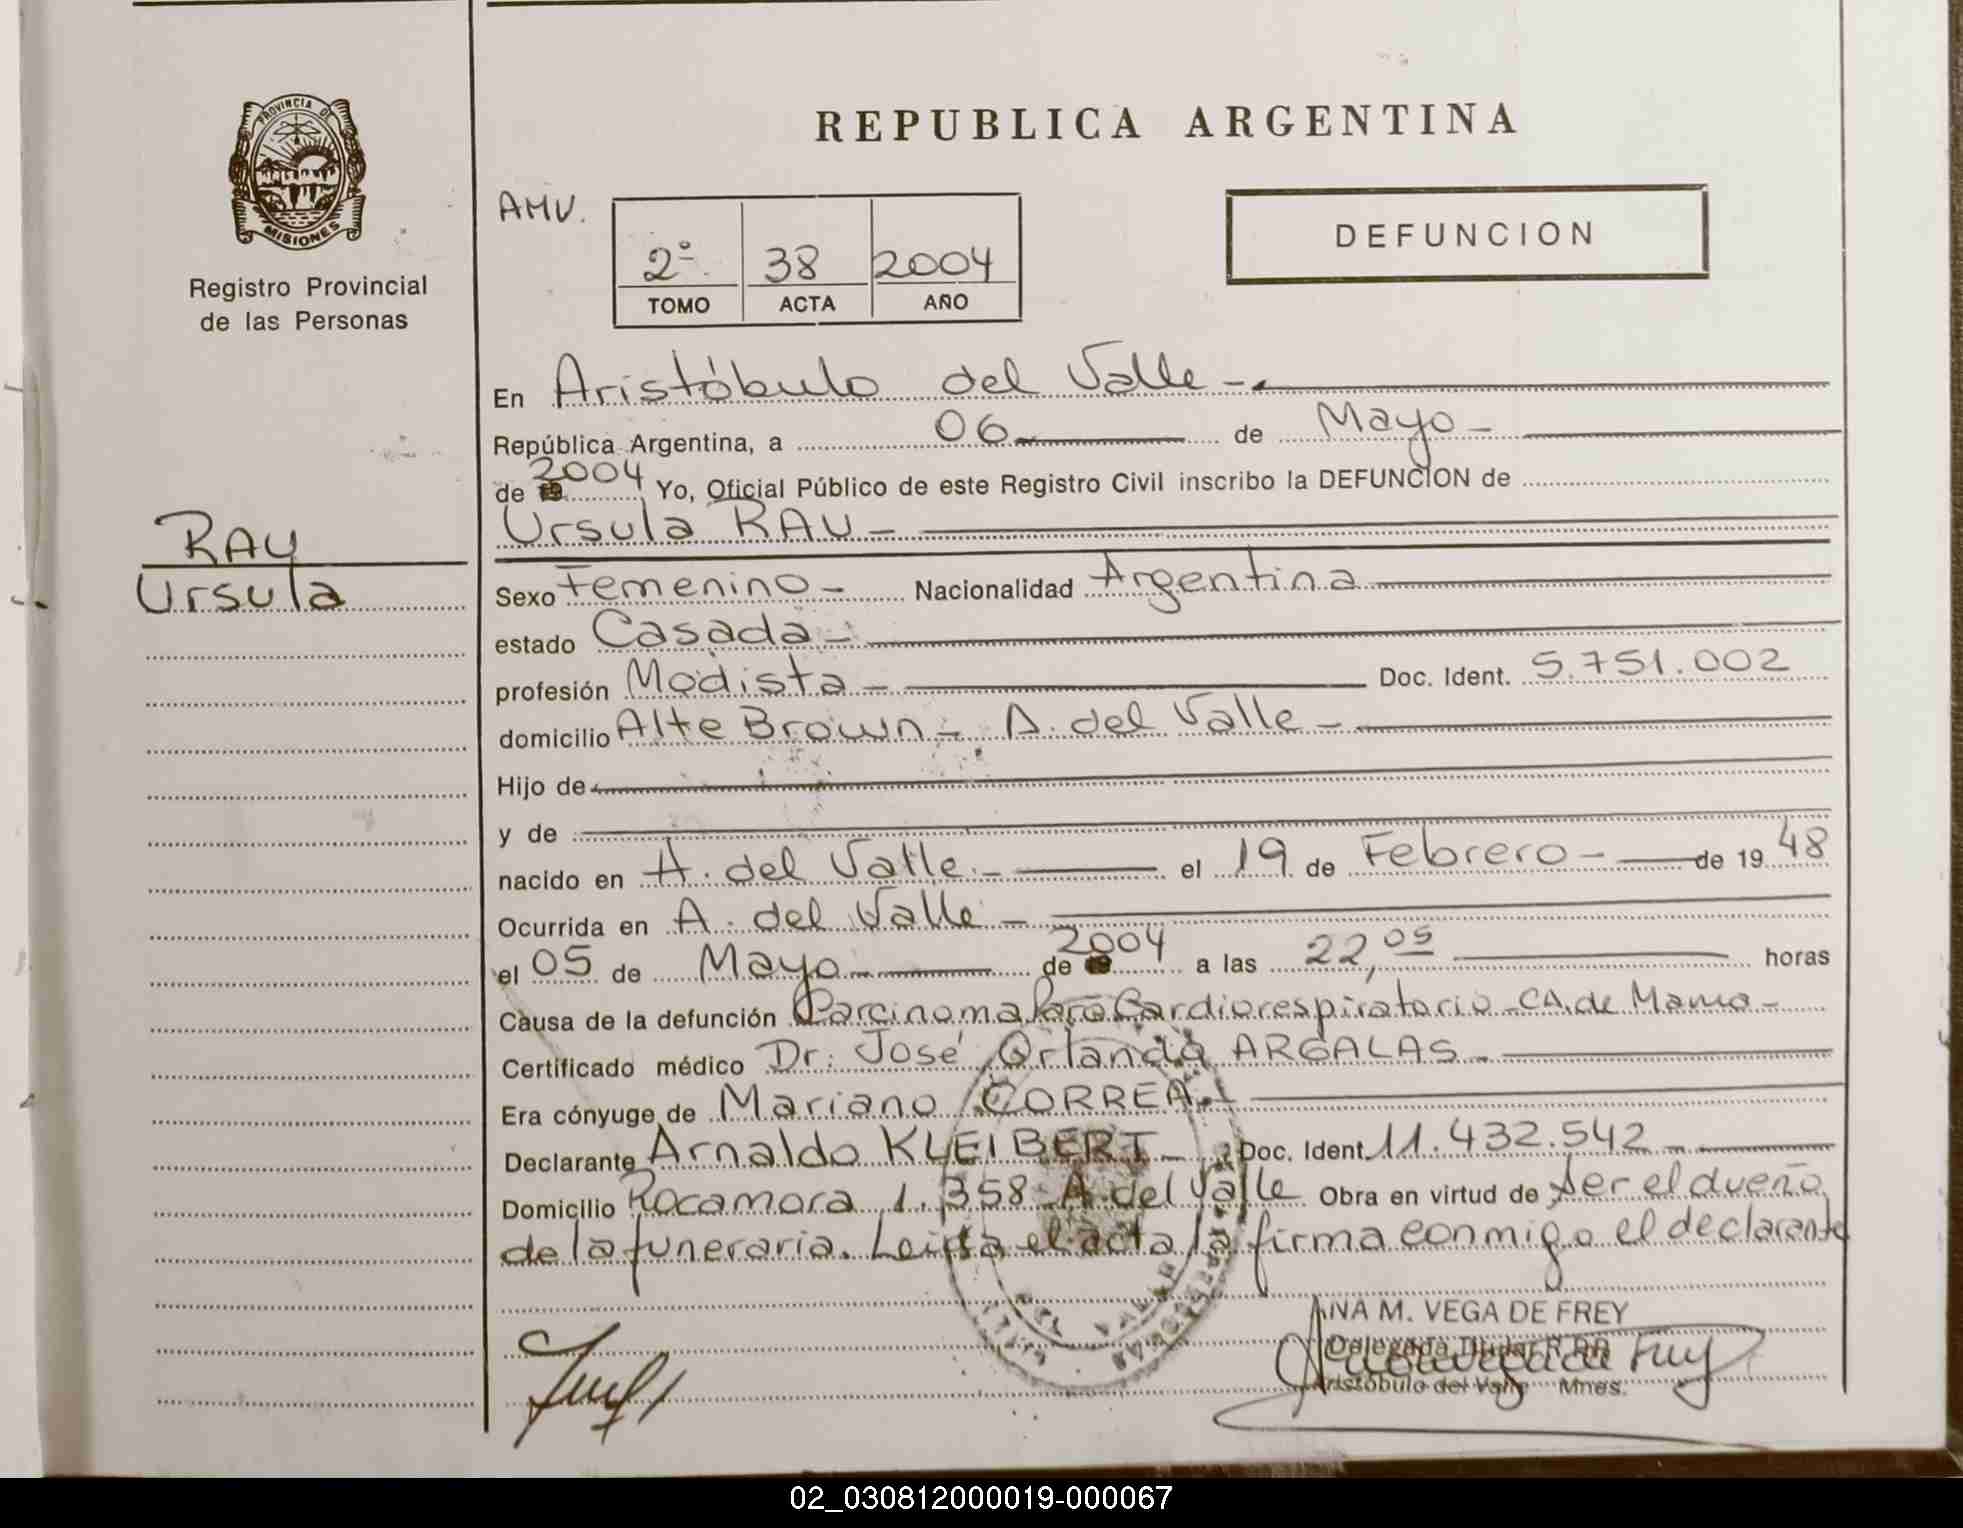 PROVINCIA DE
MISIONES
Registro Provincial
de las Personas
RAU
Ursula
REPUBLICA ARGENTINA
AMV.
2º 38 2004
TOMO ACTA AÑO
DEFUNCION
En Aristóbulo del Valle -
República Argentina, a 06 de Mayo -
de 2004 Yo, Oficial Público de este Registro Civil inscribo la DEFUNCION de
Ursula RAU -
Sexo Femenino - Nacionalidad Argentina
estado Casada -
profesión Modista - Doc. Ident. 5.751.002
domicilio Alte Brown - A. del Valle -
Hijo de
y de
nacido en A. del Valle - el 19 de Febrero - de 19 48
Ocurrida en A. del Valle -
el 05 de Mayo de 2004 a las 22,05 horas
Causa de la defunción Carcinoma Paro Cardiorespiratorio - CA. de Mama -
Certificado médico Dr. José Orlando ARGALAS -
Era cónyuge de Mariano CORREA -
Declarante Arnaldo KLEIBERT - Doc. Ident. 11.432.542 -
Domicilio Rocamora 1.358 - A. del Valle Obra en virtud de Ser el dueño
de la funeraria. Leida el acta la firma conmigo el declarante
ANA M. VEGA DE FREY
Delegada Titular R.P.P.
Aristóbulo del Valle Mnes.
02_030812000019-000067